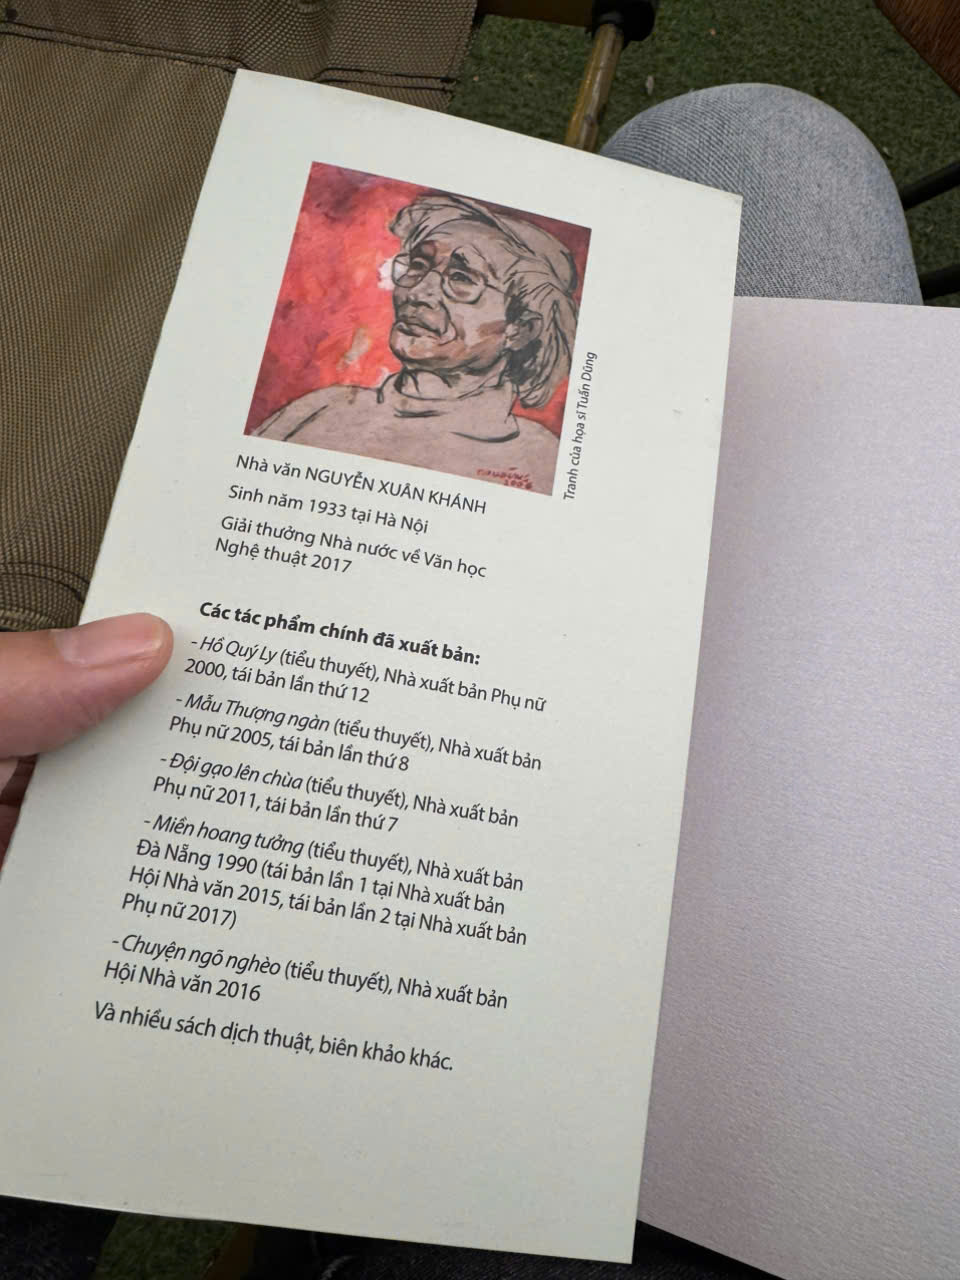 Tranh của họa sĩ Tuấn Dũng
Nhà văn NGUYỄN XUÂN KHÁNH
Sinh năm 1933 tại Hà Nội
Giải thưởng Nhà nước về Văn học
Nghệ thuật 2017
Các tác phẩm chính đã xuất bản:
- Hồ Quý Ly (tiểu thuyết), Nhà xuất bản Phụ nữ
2000, tái bản lần thứ 12
- Mẫu Thượng ngàn (tiểu thuyết), Nhà xuất bản
Phụ nữ 2005, tái bản lần thứ 8
- Đội gạo lên chùa (tiểu thuyết), Nhà xuất bản
Phụ nữ 2011, tái bản lần thứ 7
- Miền hoang tưởng (tiểu thuyết), Nhà xuất bản
Đà Nẵng 1990 (tái bản lần 1 tại Nhà xuất bản
Hội Nhà văn 2015, tái bản lần 2 tại Nhà xuất bản
Phụ nữ 2017)
- Chuyện ngõ nghèo (tiểu thuyết), Nhà xuất bản
Hội Nhà văn 2016
Và nhiều sách dịch thuật, biên khảo khác.